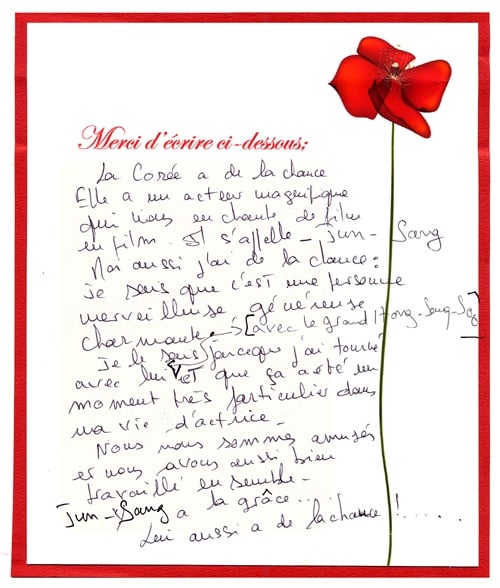 Merci d'écrire ci-dessous:
La Corée a de la chance
Elle a un acteur magnifique
qui nous enchante de film
en film. Il s'appelle - Jun - Sang
Moi aussi j'ai de la chance:
je sais que c'est une personne
merveilleuse généreuse
charmante. → [avec le grand Hong-Sang-Soo]
Je le sais parceque j'ai tourné
avec lui et que ça a été un
moment très particulier dans
ma vie d'actrice -
Nous nous sommes amusés
et nous avons aussi bien
travaillé ensemble -
Jun-Sang a la grâce...
Lui aussi a de la chance !.....